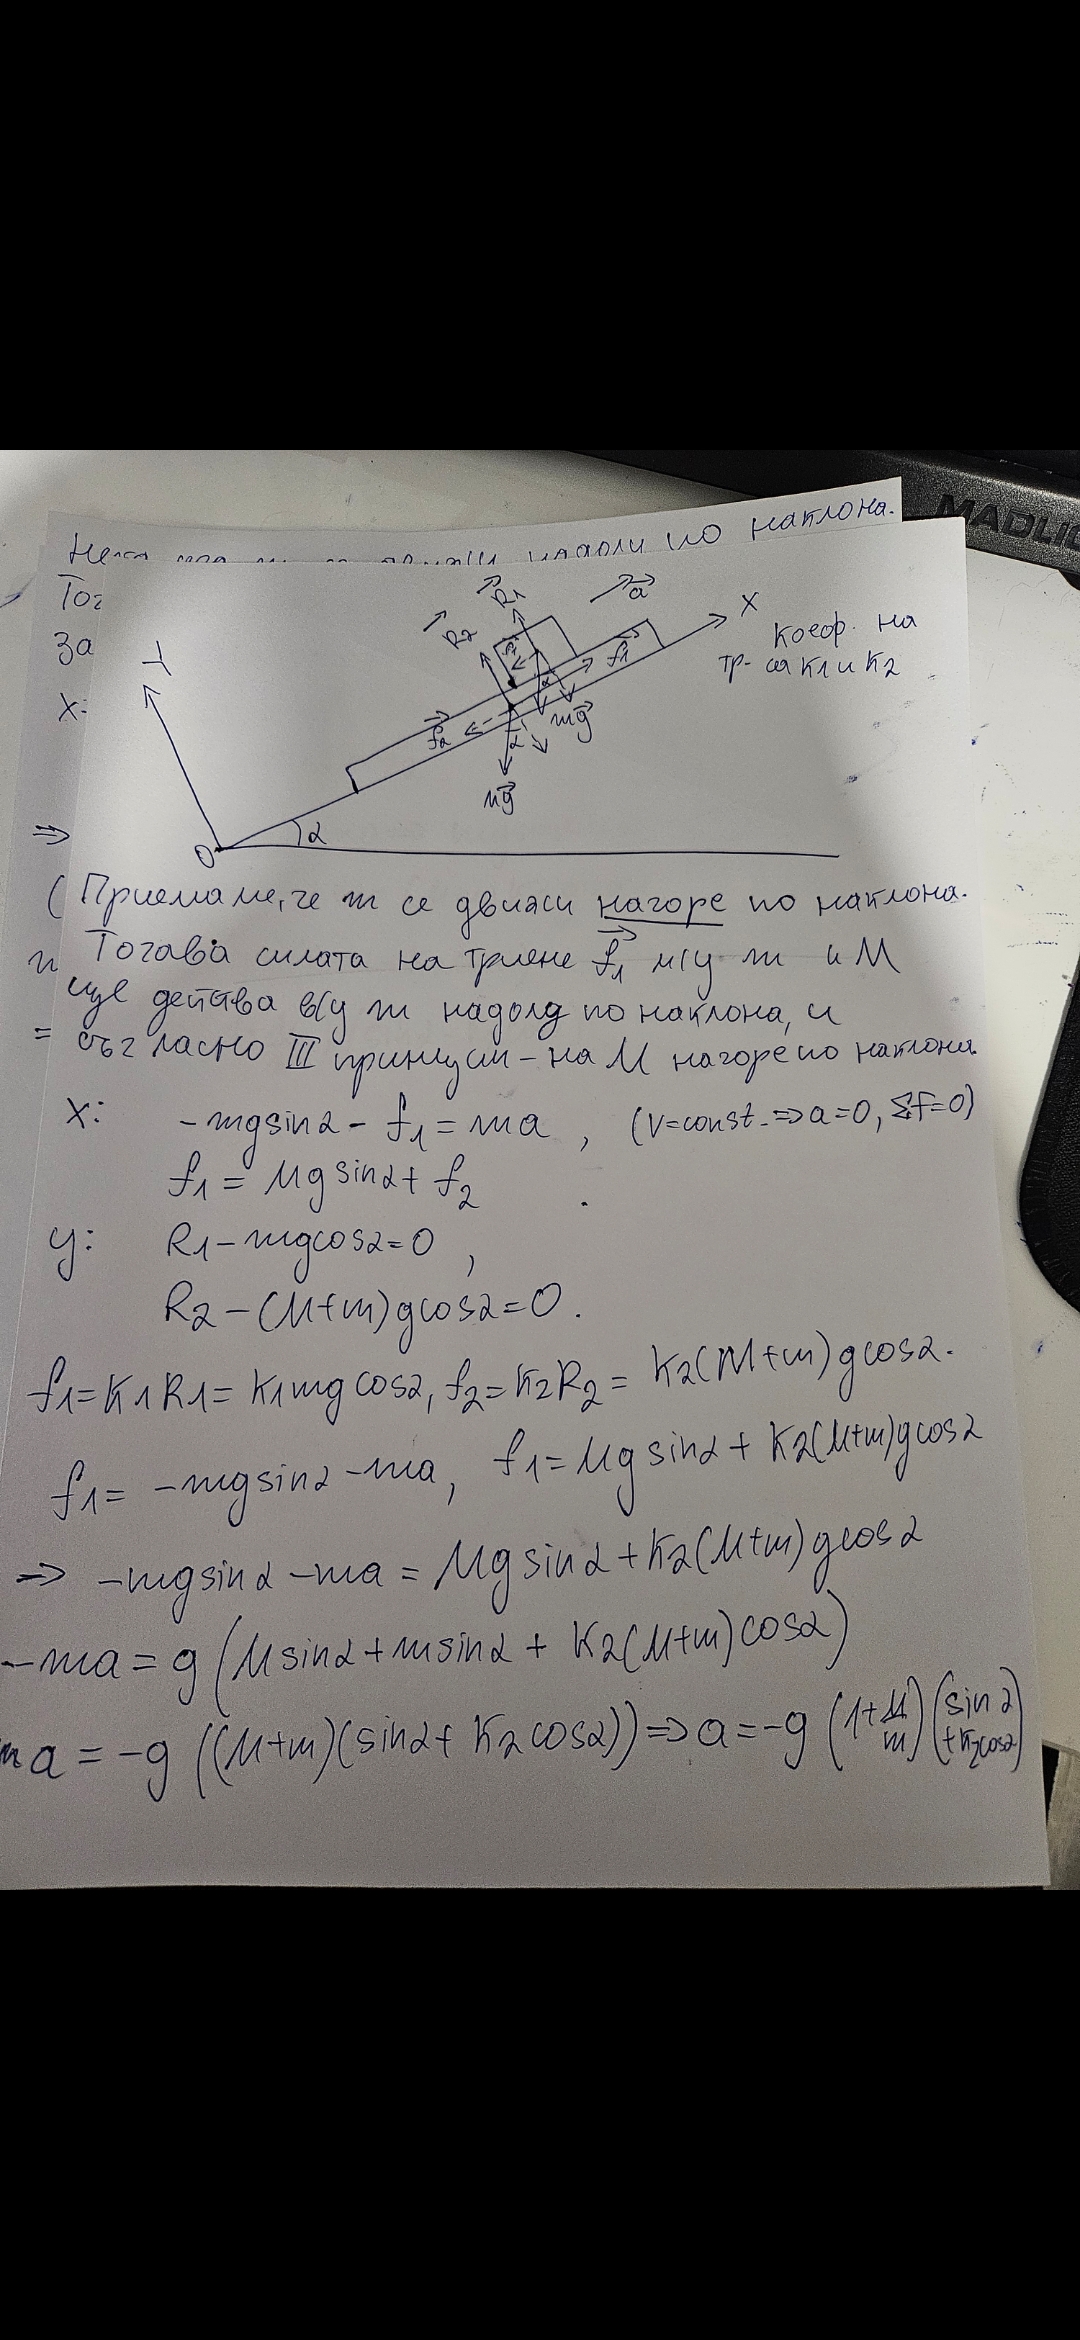 MADLIC
надоли по наклона.
Тог
За
X:
Y
R2
R1
a
X
Коеф. на
тр. са k1 и k2
f1
f1
f2
mg
α
Mg
O
α
⇒
( Приемаме, че m се движи нагоре по наклона.
Тогава силата на триене f1 м/у m и M
ще действа в/у m надолу по наклона, и
= съгласно III принцип – на M нагоре по наклона.
X: -mgsinα - f1 = ma , (V=const. ⇒ a=0, ΣF=0)
f1 = Mgsinα + f2
y: R1 - mgcosα = 0 ,
R2 - (M+m)gcosα = 0.
f1 = k1R1 = k1mgcosα, f2 = k2R2 = k2(M+m)gcosα.
f1 = -mgsinα - ma, f1 = Mgsinα + k2(M+m)gcosα
⇒ -mgsinα - ma = Mgsinα + k2(M+m)gcosα
-ma = g(Msinα + msinα + k2(M+m)cosα)
ma = -g((M+m)(sinα + k2cosα)) ⇒ a = -g(1+M/m)(sinα + k2cosα)